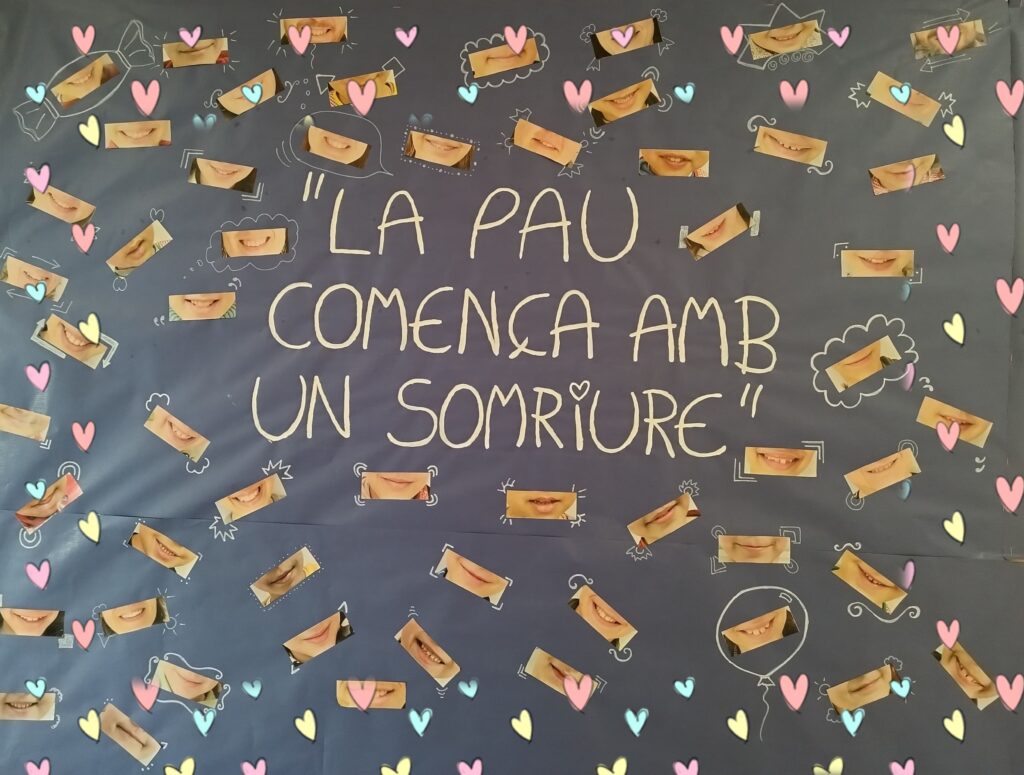 "LA PAU
COMENÇA AMB
UN SOMRIURE"